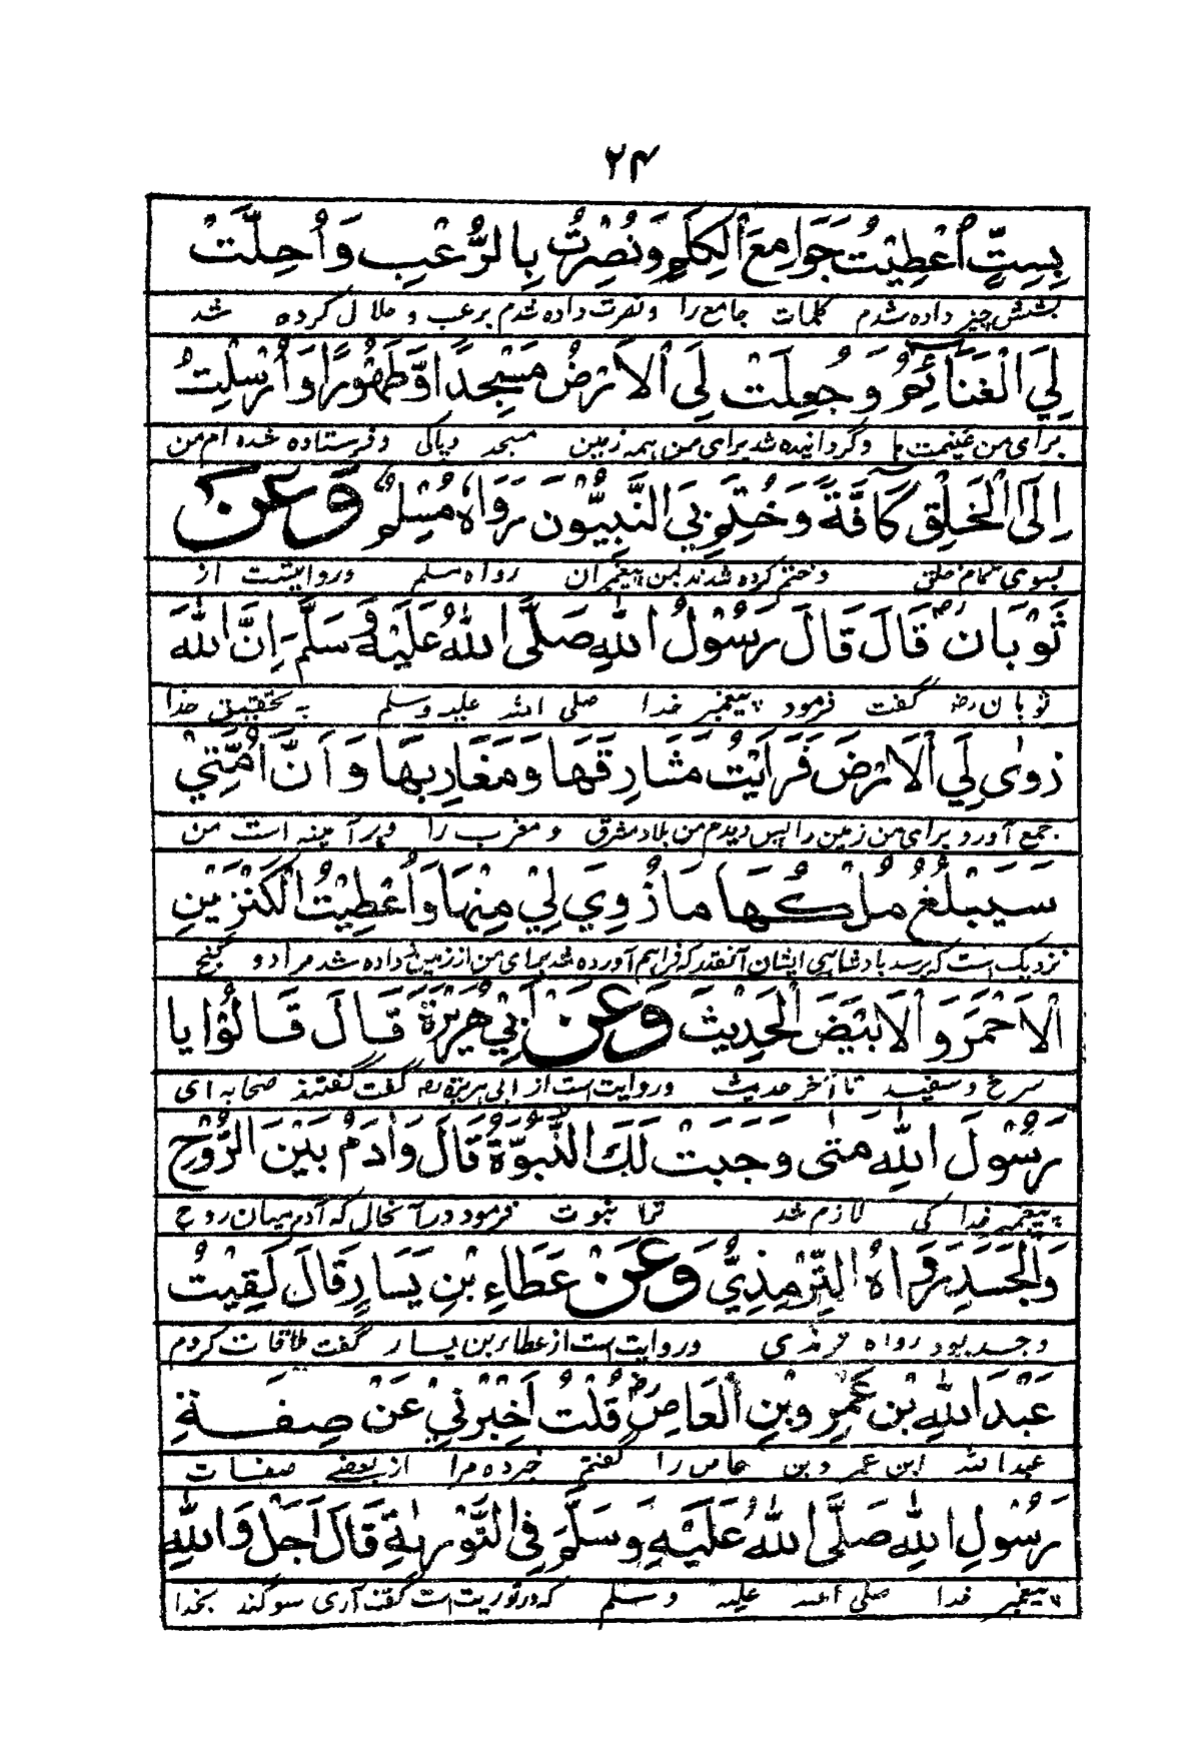 ۲۴
بِسِتٍّ اُعْطِيْتُ جَوَامِعَ الْكَلِمِ وَنُصِرْتُ بِالرُّعْبِ وَاُحِلَّتْ
بشش چیز داده شدم کلمات جامع را و نصرت داده شدم برعب و حلال کرده شد
لِيَ الْغَنَآئِمُ وَجُعِلَتْ لِيَ الْاَرْضُ مَسْجِدًا وَّطَهُوْرًا وَاُرْسِلْتُ
برای من غنیمت ها و گردانیده شد برای من همه زمین مسجد و پاکی و فرستاده شده ام من
اِلَى الْخَلْقِ كَآفَّةً وَخُتِمَ بِيَ النَّبِيُّوْنَ رَوَاهُ مُسْلِمٌ وَعَنْ
بسوی تمام خلق و ختم کرده شدند بمن پیغمبران رواه مسلم و روایتست از
ثَوْبَانَ رض قَالَ قَالَ رَسُوْلُ اللهِ صَلَّى اللهُ عَلَيْهِ وَسَلَّمَ اِنَّ اللهَ
ثوبان رض گفت فرمود پیغمبر خدا صلی الله علیه وسلم به تحقیق خدا
زَوٰى لِيَ الْاَرْضَ فَرَاَيْتُ مَشَارِقَهَا وَمَغَارِبَهَا وَاَنَّ اُمَّتِيْ
جمع آورد برای من زمین را پس دیدم من بلاد مشرق و مغرب را و هر آئینه امت من
سَيَبْلُغُ مُلْكُهَا مَا زُوِيَ لِيْ مِنْهَا وَاُعْطِيْتُ الْكَنْزَيْنِ
نزدیک است که برسد بادشاهی ایشان آنقدر که فراهم آورده شد برای من از زمین و داده شد مرا دو گنج
الْاَحْمَرَ وَالْاَبْيَضَ الْحَدِيْثَ وَعَنْ اَبِيْ هُرَيْرَةَ قَالَ قَالُوْا يَا
سرخ و سفید تا آخر حدیث و روایت است از ابی هریره رض گفت گفتند صحابه ای
رَسُوْلَ اللهِ مَتٰى وَجَبَتْ لَكَ النُّبُوَّةُ قَالَ وَاٰدَمُ بَيْنَ الرُّوْحِ
پیغمبر خدا کی لازم شد ترا نبوت فرمود در آنحال که آدم میان روح
وَالْجَسَدِ رَوَاهُ التِّرْمِذِيُّ وَعَنْ عَطَاءِ بْنِ يَسَارٍ قَالَ لَقِيْتُ
و جسد بود رواه ترمذی و روایت است از عطاء بن یسار گفت ملاقات کردم
عَبْدَ اللهِ بْنَ عَمْرِو بْنِ الْعَاصِ رض قُلْتُ اَخْبِرْنِيْ عَنْ صِفَةِ
عبدالله ابن عمر و بن عاص را گفتم خبر ده مرا از بعضے صفات
رَسُوْلِ اللهِ صَلَّى اللهُ عَلَيْهِ وَسَلَّمَ فِي التَّوْرٰىةِ قَالَ اَجَلْ وَاللهِ
پیغمبر خدا صلی الله علیه وسلم که در توریت است گفت آری سوگند بخدا